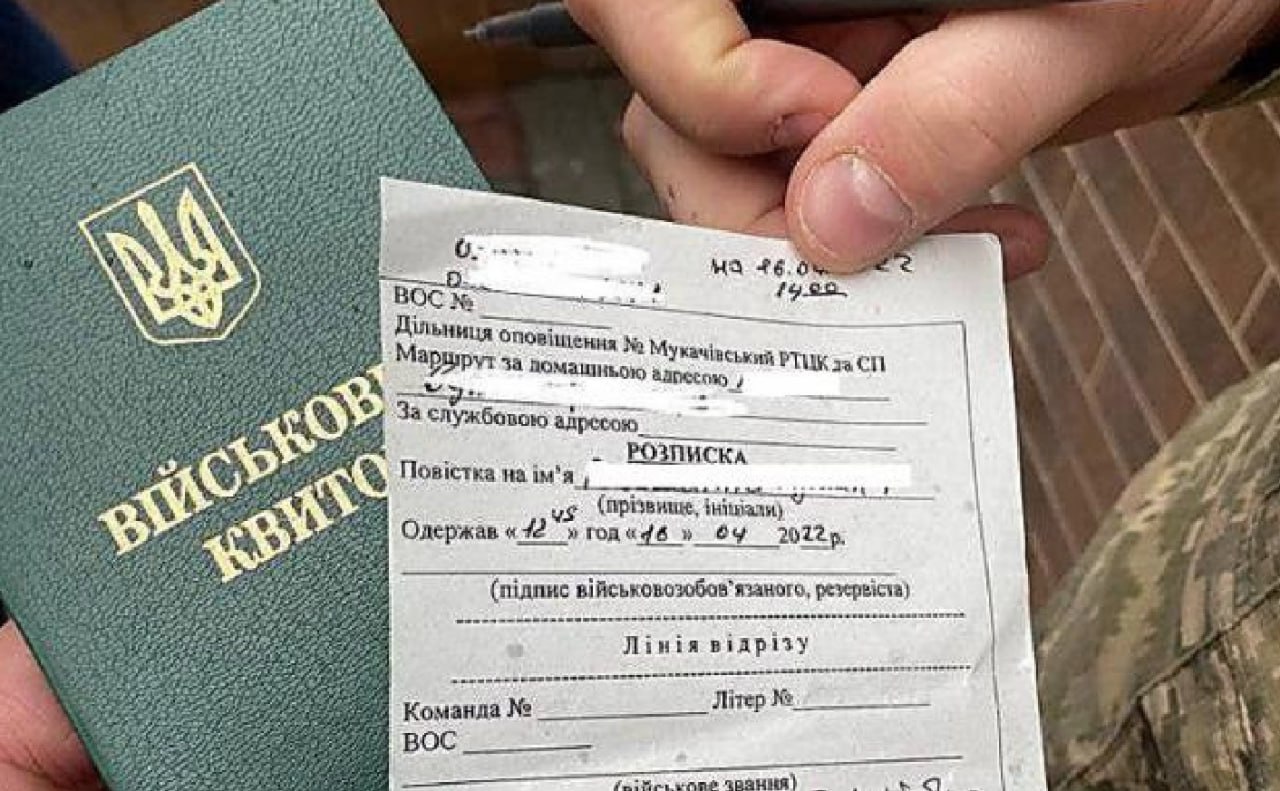 ВІЙСЬКОВ
КВИТО
на 16.04 22
14 00
ВОС №
Дільниця оповіщення № Мукачівський РТЦК да СП
Маршрут за домашньою адресою
За службовою адресою
РОЗПИСКА
Повістка на ім'я
(прізвище, ініціали)
Одержав «12 45» год «16» 04 2022р.
(підпис військовозобов'язаного, резервіста)
Лінія відрізу
Команда № Літер №
ВОС
(військове звання)